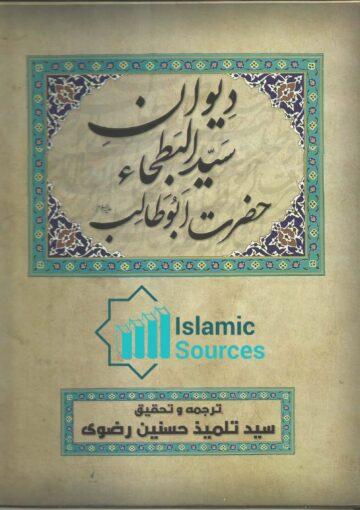 دیوان
سیّد البطحاء
حضرت ابوطالب علیہ السلام
Islamic
Sources
ترجمہ و تحقیق
سید تلمیذ حسنین رضوی